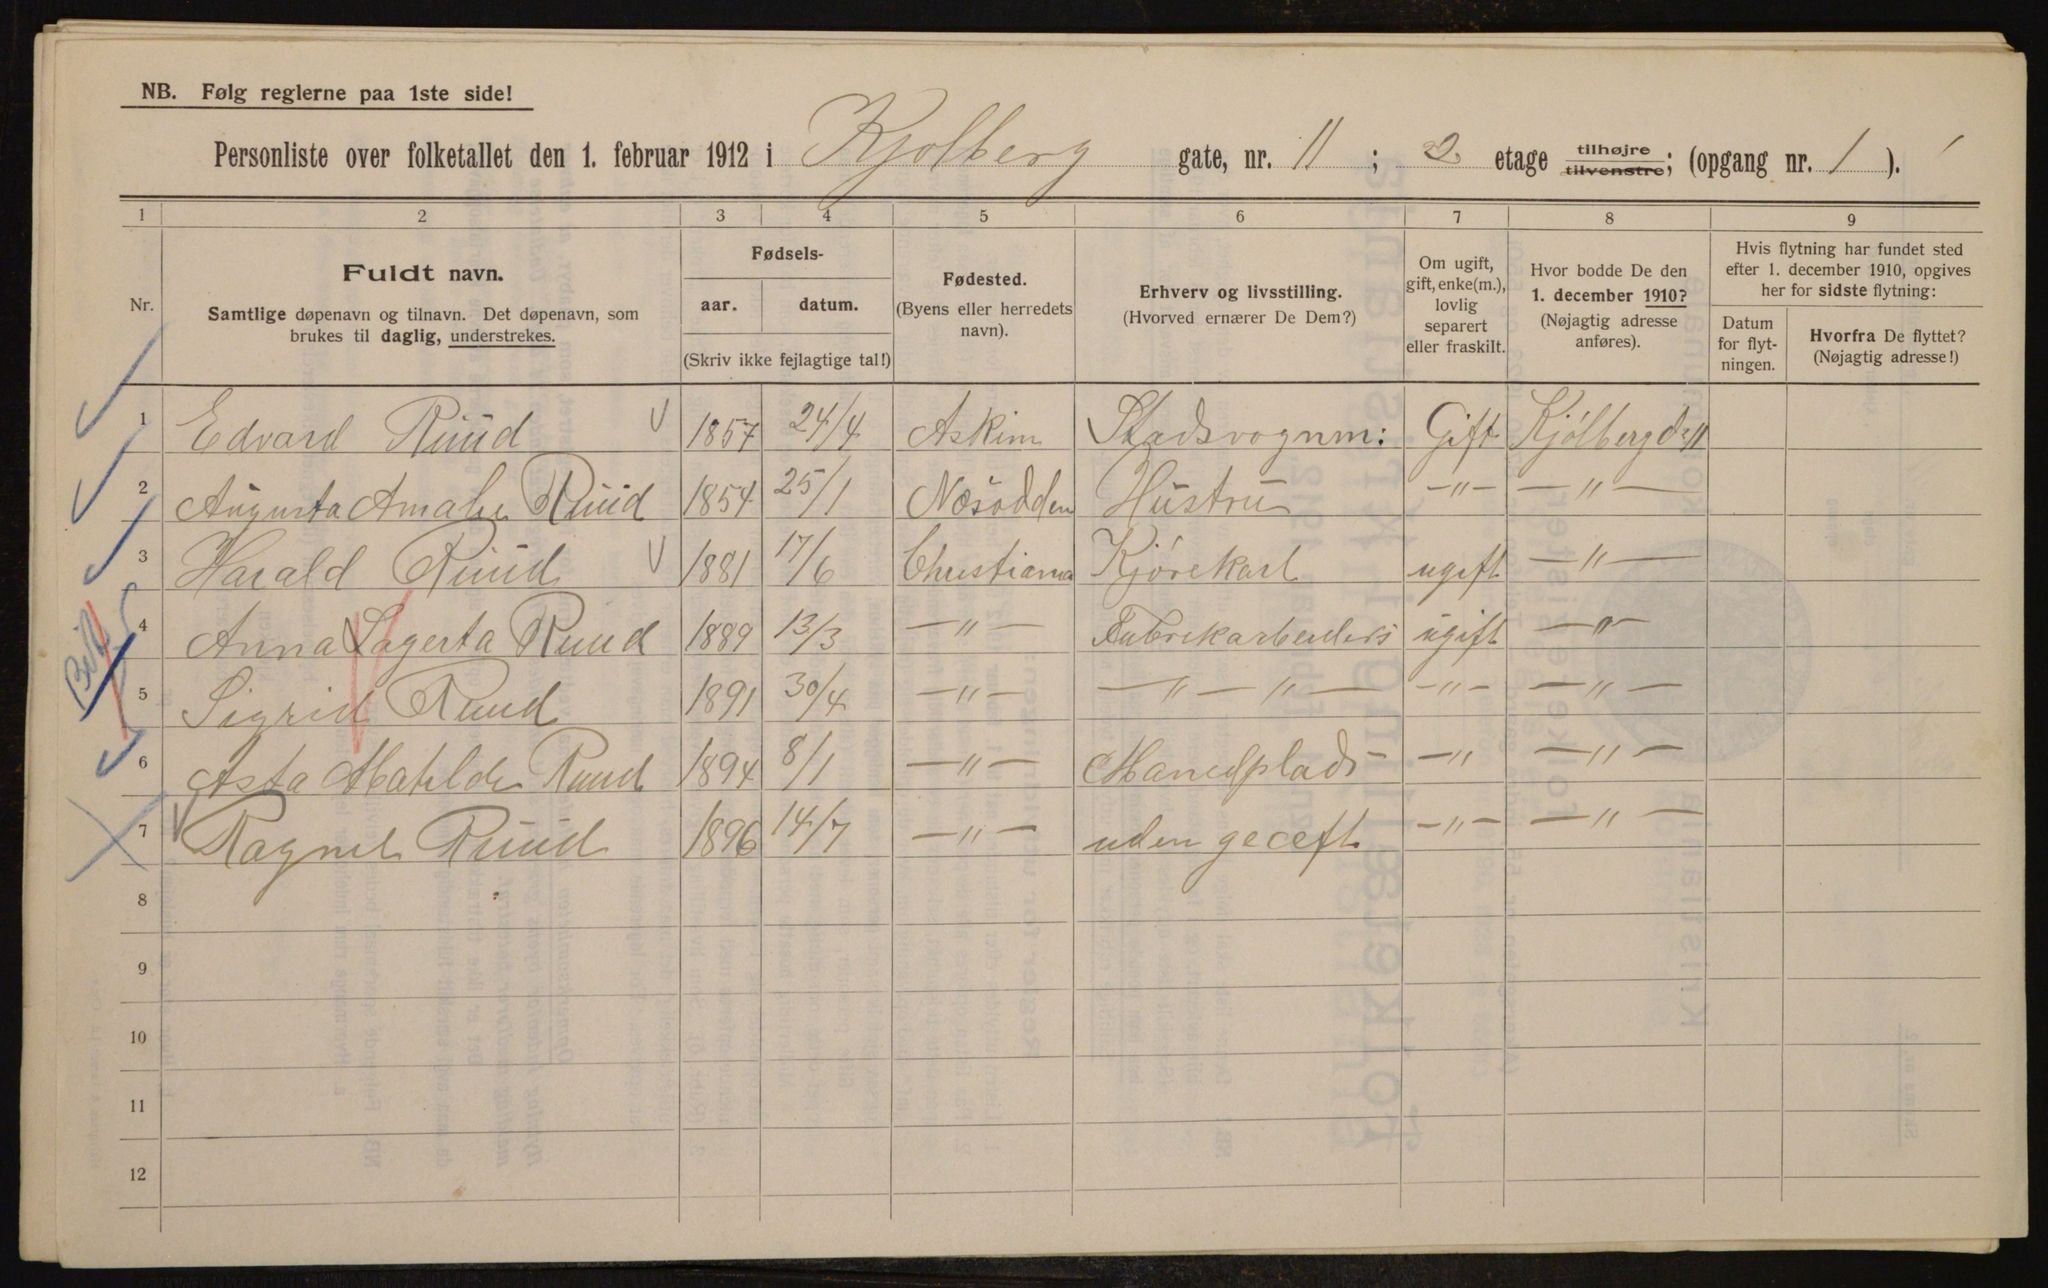 NB. Følg reglerne paa 1ste side!
Personliste over folketallet den 1. februar 1912 i Kjølberg gate, nr. 11 ; 2 etage tilhøjre tilvenstre; (opgang nr. 1 ).
1 2 3 4 5 6 7 8 9
Nr.
Fuldt navn.
Samtlige døpenavn og tilnavn. Det døpenavn, som
brukes til daglig, understrekes.
Fødsels-
aar. datum.
(Skriv ikke fejlagtige tal!)
Fødested.
(Byens eller herredets
navn).
Erhverv og livsstilling.
(Hvorved ernærer De Dem?)
Om ugift,
gift, enke(m.),
lovlig
separert
eller fraskilt.
Hvor bodde De den
1. december 1910?
(Nøjagtig adresse
anføres).
Hvis flytning har fundet sted
efter 1. december 1910, opgives
her for sidste flytning:
Datum
for flyt-
ningen.
Hvorfra De flyttet?
(Nøjagtig adresse!)
1 Edvard Ruud 1857 24/4 Askim Stadsvognm: Gift Kjølbergd 11
2 Augusta Amalie Ruud 1854 25/1 Næsodden Hustru —"— —"—
3 Harald Ruud 1881 17/6 Christiania Kjørekarl ugift —"—
4 Anna Lagerta Ruud 1889 13/3 —"— Fabrikarbeiders ugift —"—
5 Sigrid Ruud 1891 30/4 —"— —"—"— —"— —"—
6 Asta Matilde Ruud 1894 8/1 —"— —" —"—
7 Ragnel Ruud 1896 14/7 —"— uden geceft —"— —"—
8
9
10
11
12